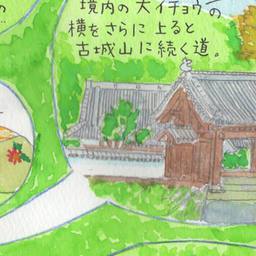 境内の大イチョウの
横をさらに上ると
古城山に続く道。